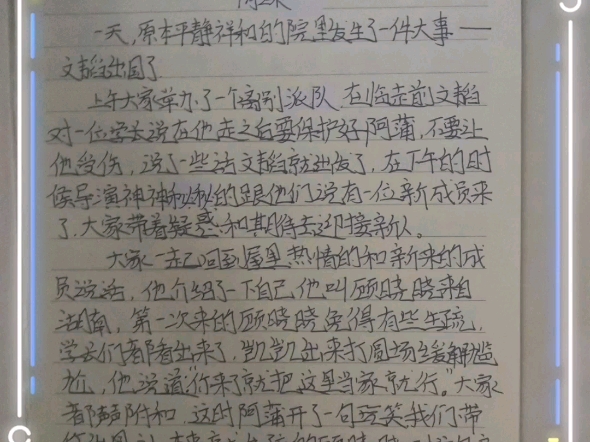 一天,原本平静祥和的院里发生了一件大事——
文韬出国了.
上午大家举办了一个离别派队,在临走前文韬
对一位学长说在他走之后要保护好阿蒲,不要让
他受伤,说了一些话文韬就出发了,在下午的时
候导演神神秘秘的跟他们说有一位新成员来
了,大家带着疑惑和期待去迎接新人。
大家一起回到屋里热情的和新来的成
员说话,他介绍了一下自己他叫顾晓晓来自
湖南,第一次来的顾晓晓免得有些生疏,
学长们都看出来了,凯凯出来打圆场缓解尴
尬,他说道"你来了就把这里当家就行。"大家
都声附和,这时阿蒲开了一句玩笑我们带